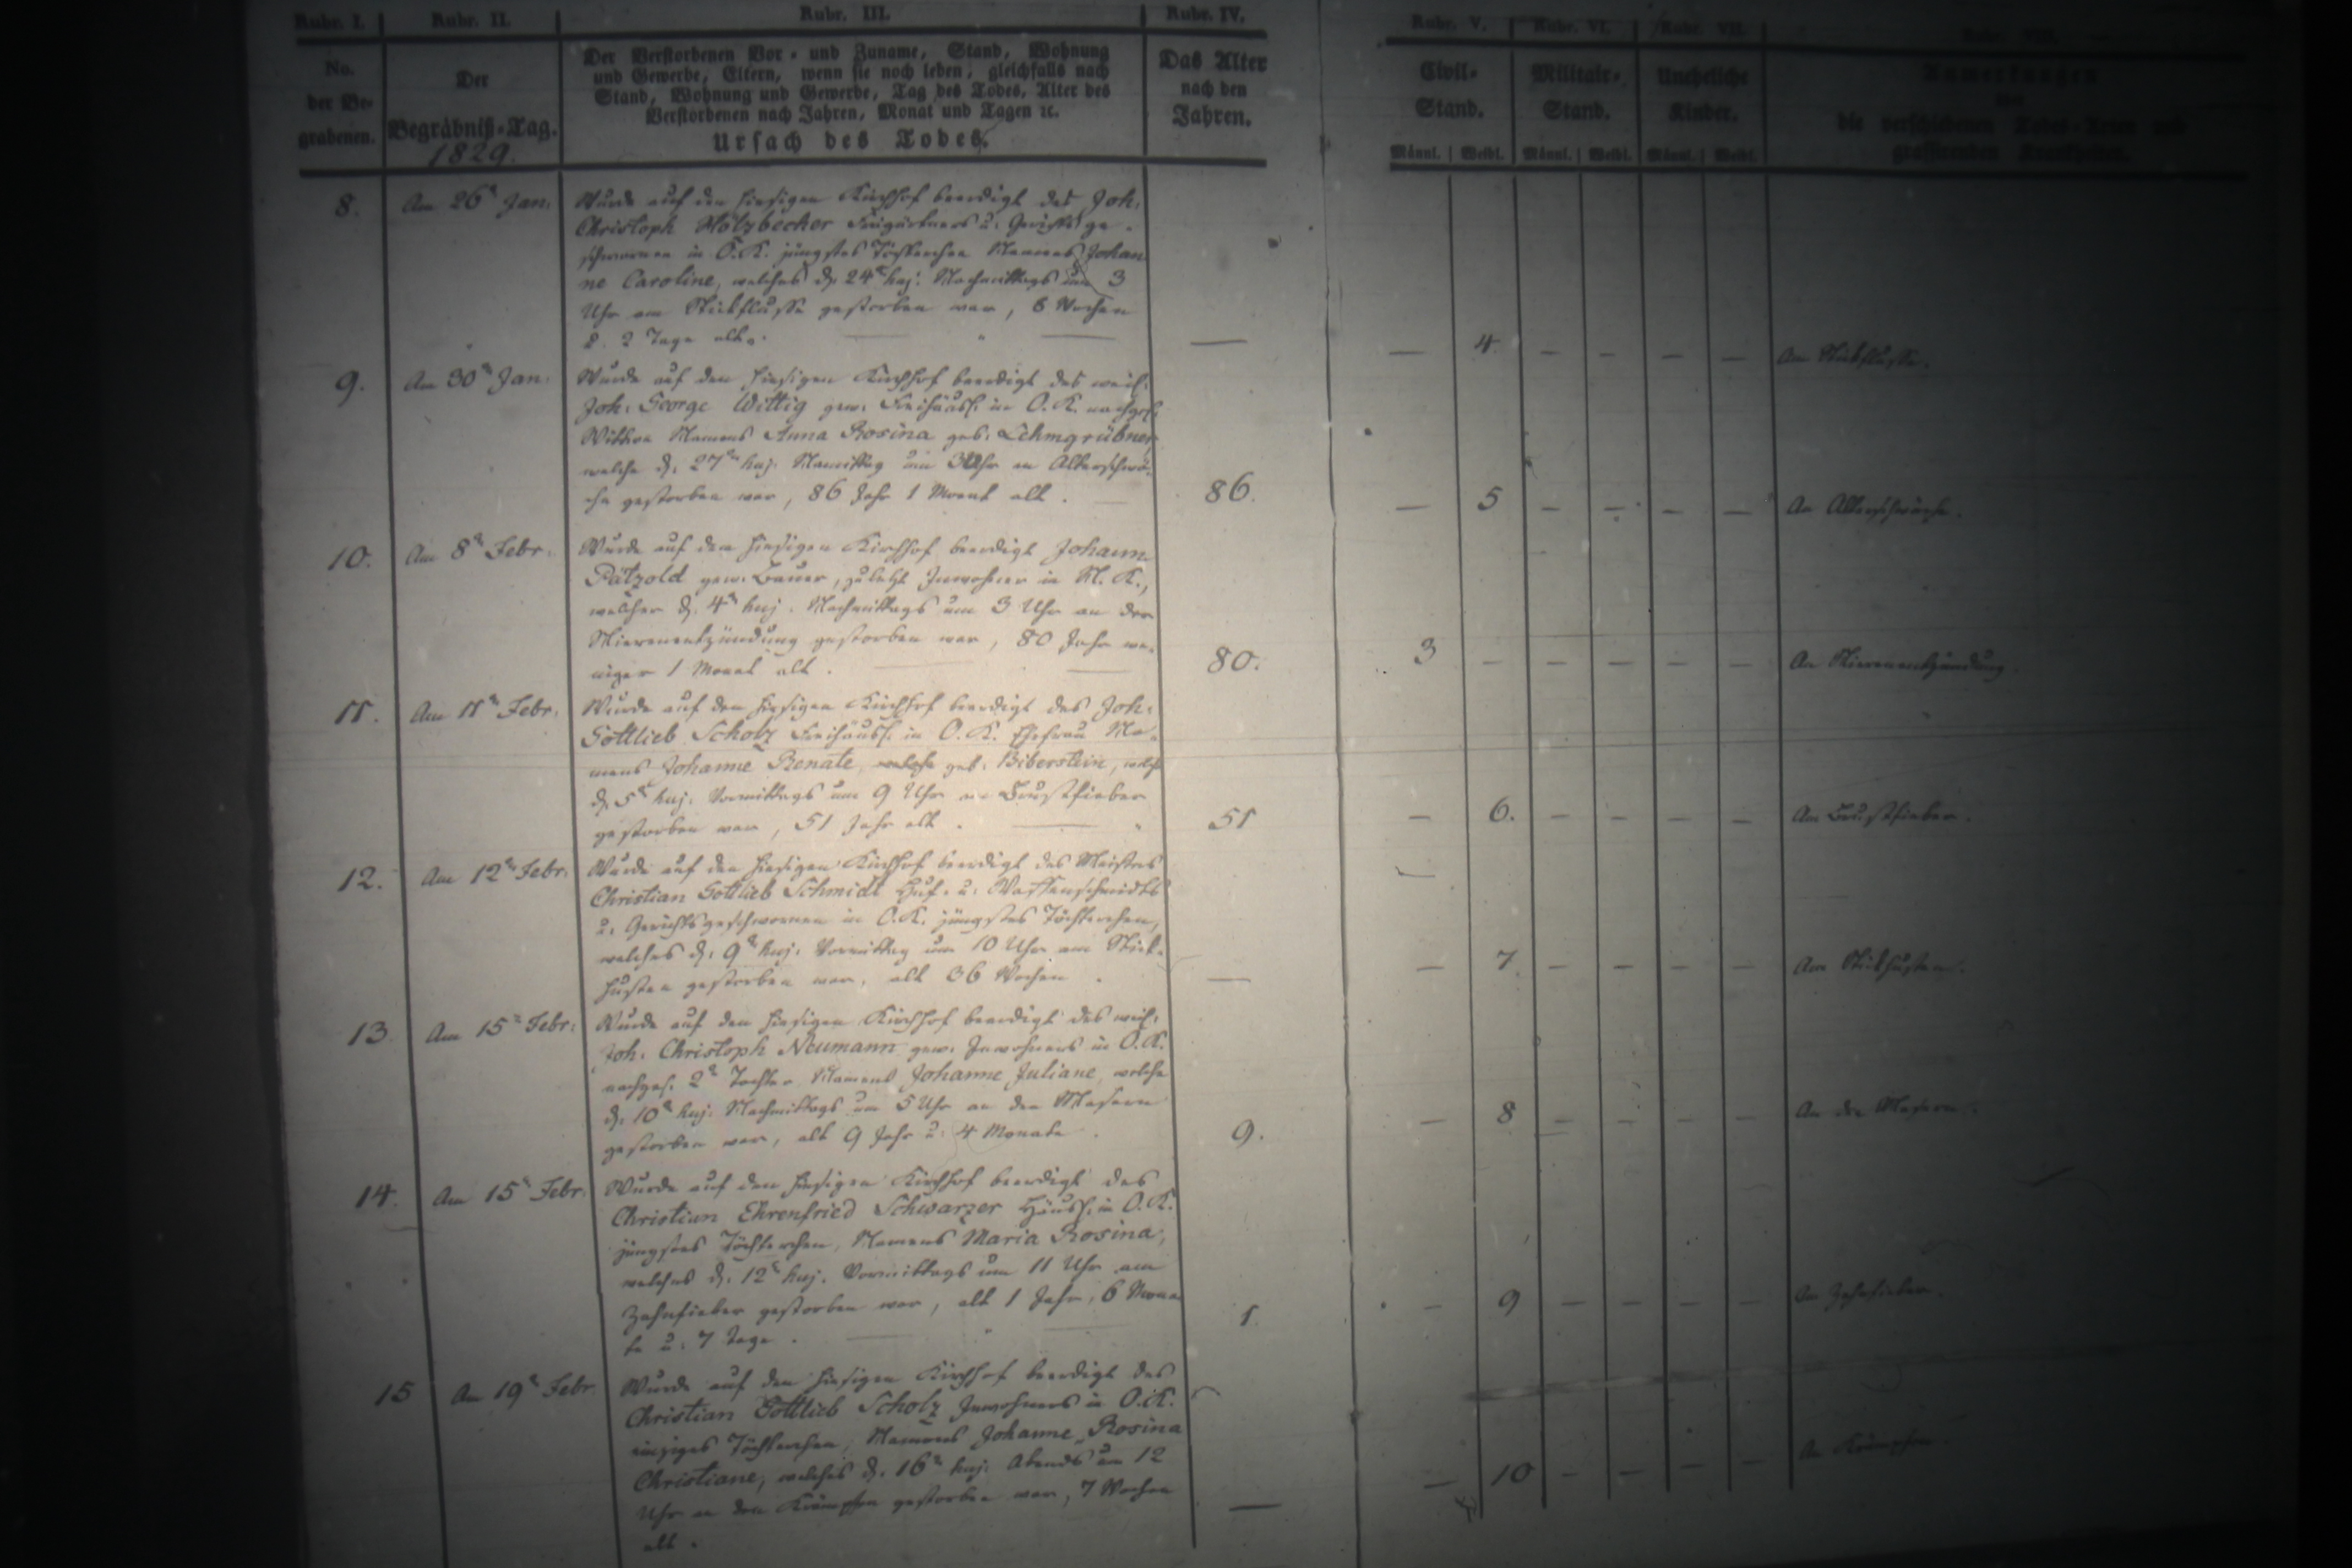 Rubr. I.
No.
der Be-
grabenen.
Rubr. II.
Der
Begräbniß-Tag.
1829.
Rubr. III.
Der Verstorbenen Vor- und Zuname, Stand, Wohnung
und Gewerbe, Eltern, wenn sie noch leben, gleichfalls nach
Stand, Wohnung und Gewerbe, Tag des Todes, Alter des
Verstorbenen nach Jahren, Monat und Tagen ꝛc.
Ursach des Todes.
Rubr. IV.
Das Alter
nach den
Jahren.
Rubr. V.
Civil-
Stand.
Männl. Weibl.
Rubr. VI.
Militair-
Stand.
Männl. Weibl.
Rubr. VII.
Uneheliche
Kinder.
Männl. Weibl.
Rubr. VIII.
Anmerkungen
die verschiedenen Todes-Arten und
grassirenden Krankheiten.
8.
Am 26n Jan:
Wurde auf den hiesigen Kirchhof beerdigt des Joh:
Christoph Holzbecher Freigärtners u. Gerichtsge-
schwornen in O.K. jüngstes Töchterchen Namens Johan
ne Caroline, welches d. 24n huj. Nachmittags um 3
Uhr am Stickflusse gestorben war, 6 Wochen
u. 2 Tage alt.
—
— 4. — — — —
Am Stickflusse.
9.
Am 30n Jan:
Wurde auf den hiesigen Kirchhof beerdigt des weil.
Joh: George Wittig gew. Freihäusl. in O.K. nachgel.
Wittwe Namens Anna Rosina geb. Lehmgrübner
welche d. 27n huj. um 3 Uhr an Altersschwä-
che gestorben war, 86 Jahr 1 Monat alt.
86.
— 5 — — — —
An Altersschwäche.
10.
Am 8n Febr:
Wurde auf dem hiesigen Kirchhof beerdigt Johann
Pätzold gew. Bauer, zuletzt Inwohner in N.K.,
welcher d. 4n huj. Nachmittags um 3 Uhr an der
Nierenentzündung gestorben war, 80 Jahr we-
niger 1 Monat alt.
80.
3 — — — — —
An Nierenentzündung
11.
Am 11n Febr:
Wurde auf den hiesigen Kirchhof beerdigt des Joh:
Gottlieb Scholz Freihäusl. in O.K. Ehefrau Na-
mens Johanne Renate, welche geb. Biberstein, welche
d. 5n huj. Vormittags um 9 Uhr am Brustfieber
gestorben war, 51 Jahr alt.
51
— 6. — — — —
Am Brustfieber.
12.
Am 12n Febr:
Wurde auf den hiesigen Kirchhof beerdigt des Meisters
Christian Gottlieb Schmidt Huf- u. Waffenschmidts
u. Gerichtsgeschwornen in O.K. jüngstes Töchterchen,
welches d. 9n huj. Vormittag um 10 Uhr am Stick-
husten gestorben war, alt 36 Wochen.
—
— 7. — — — —
Am Stickhusten.
13.
Am 15n Febr:
Wurde auf den hiesigen Kirchhof beerdigt des weil.
Joh: Christoph Neumann gew. Inwohners in O.K.
nachgel. 2n Tochter Namens Johanne Juliane, welche
d. 10n huj. Nachmittags um 5 Uhr an den Masern
gestorben war, alt 9 Jahr u. 4 Monate.
9.
— 8 — — — —
An den Masern.
14.
Am 15n Febr.
Wurde auf den hiesigen Kirchhof beerdigt des
Christian Ehrenfried Schwarzer Häusl. in O.K.
jüngstes Töchterchen, Namens Maria Rosina,
welches d. 12n huj. Vormittags um 11 Uhr am
Zahnfieber gestorben war, alt 1 Jahr, 6 Mona
te u. 7 Tage.
1.
— 9 — — — —
Am Zahnfieber.
15
Am 19n Febr.
Wurde auf den hiesigen Kirchhof beerdigt des
Christian Gottlieb Scholz Inwohners in O.K.
einziges Töchterchen, Namens Johanne Rosina
Christiane, welches d. 16n huj. Abends um 12
Uhr an den Krämpfen gestorben war, 7 Wochen
alt.
—
— 10 — — — —
An Krämpfen.